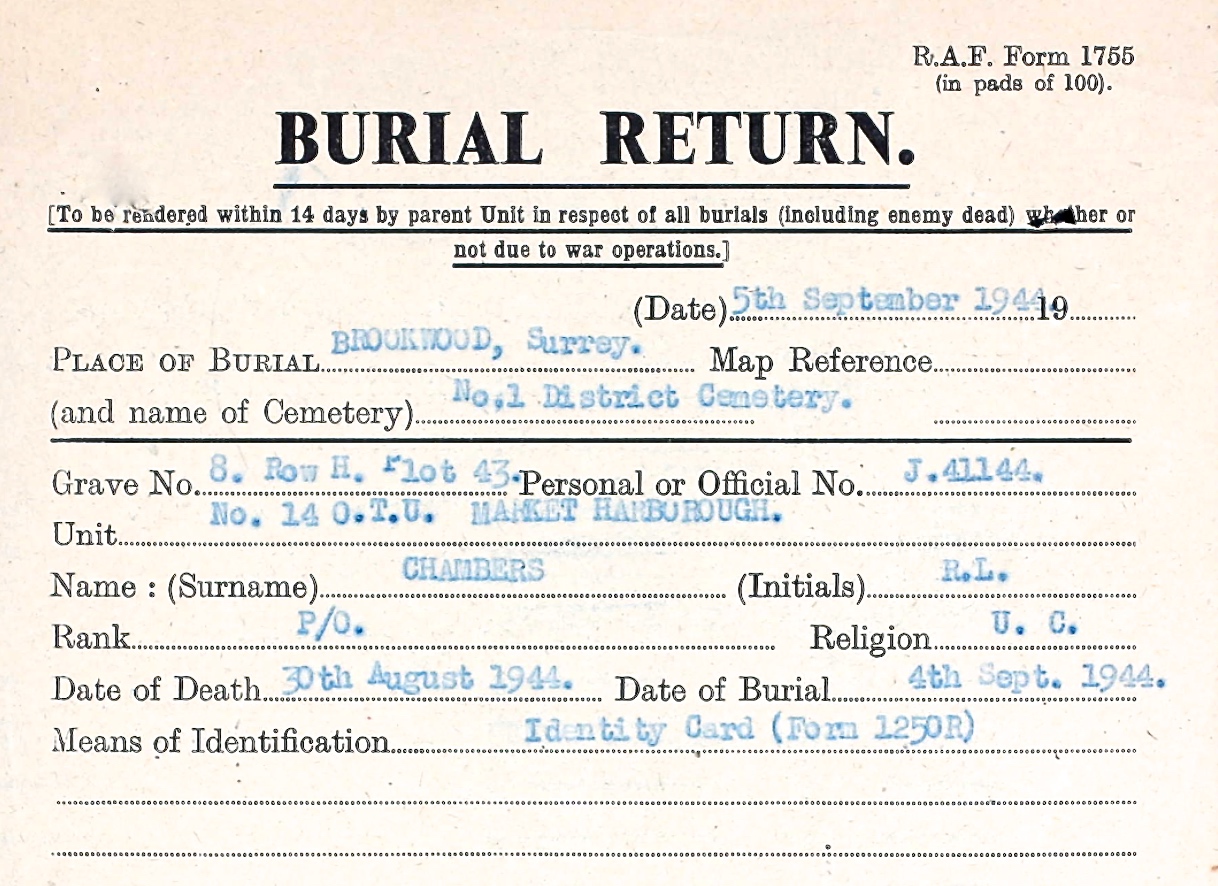 R.A.F. Form 1755
(in pads of 100).
BURIAL RETURN.
[To be rendered within 14 days by parent Unit in respect of all burials (including enemy dead) whether or
not due to war operations.]
(Date) 5th September 1944. 19
PLACE OF BURIAL BROOKWOOD, Surrey. Map Reference
(and name of Cemetery) No.1 District Cemetery.
Grave No. 8. Row H. Plot 43. Personal or Official No. J.41144.
Unit No. 14 O.T.U. MARKET HARBOROUGH.
Name : (Surname) CHAMBERS (Initials) R.L.
Rank P/O. Religion U. C.
Date of Death 30th August 1944. Date of Burial 4th Sept. 1944.
Means of Identification Identity Card (Form 1250R)